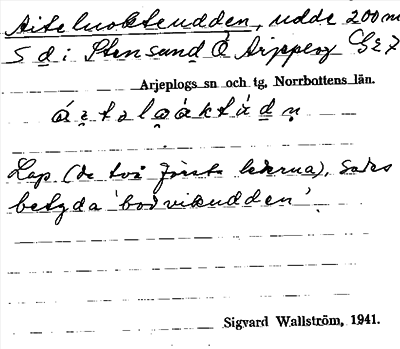 Aiteluokteudden, udde 200 m
S d i Stensund Ö Arjeplog
Arjeplogs sn och tg, Norrbottens län.
Lap. (de två första lederna), sades
betyda 'bodvikudden'.
Sigvard Wallström, 1941.